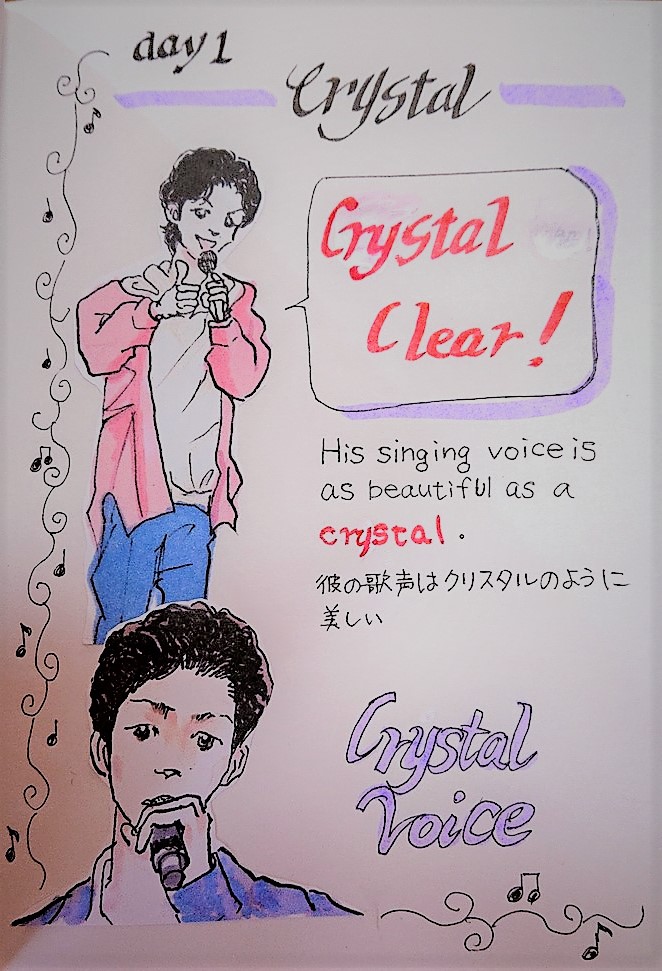 day 1
Crystal
Crystal
Clear!
His singing voice is
as beautiful as a
crystal.
彼の歌声はクリスタルのように
美しい
Crystal
Voice